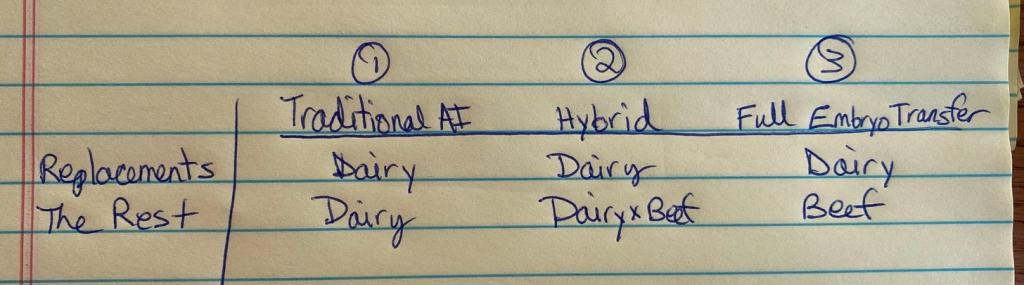 ① ② ③
Traditional AI Hybrid Full Embryo Transfer
Replacements Dairy Dairy Dairy
The Rest Dairy Dairy x Beef Beef